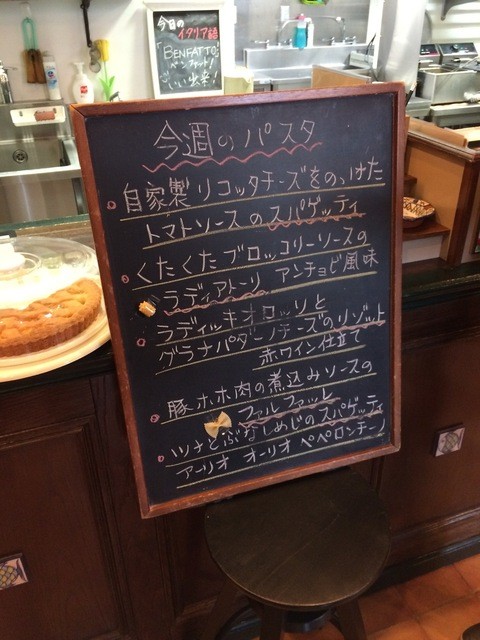 今日の
イタリア語
"BENFATTO"
ベンファット！
いい出来！
今週のパスタ
自家製リコッタチーズをのっけた
トマトソースのスパゲッティ
くたくたブロッコリーソースの
ラディアトーリ アンチョビ風味
ラディッキオロッソと
グラナパダーノチーズのリゾット
赤ワイン仕立て
豚ホホ肉の煮込みソースの
ファルファッレ
ツナとぶなしめじのスパゲッティ
アーリオ オーリオ ペペロンチーノ